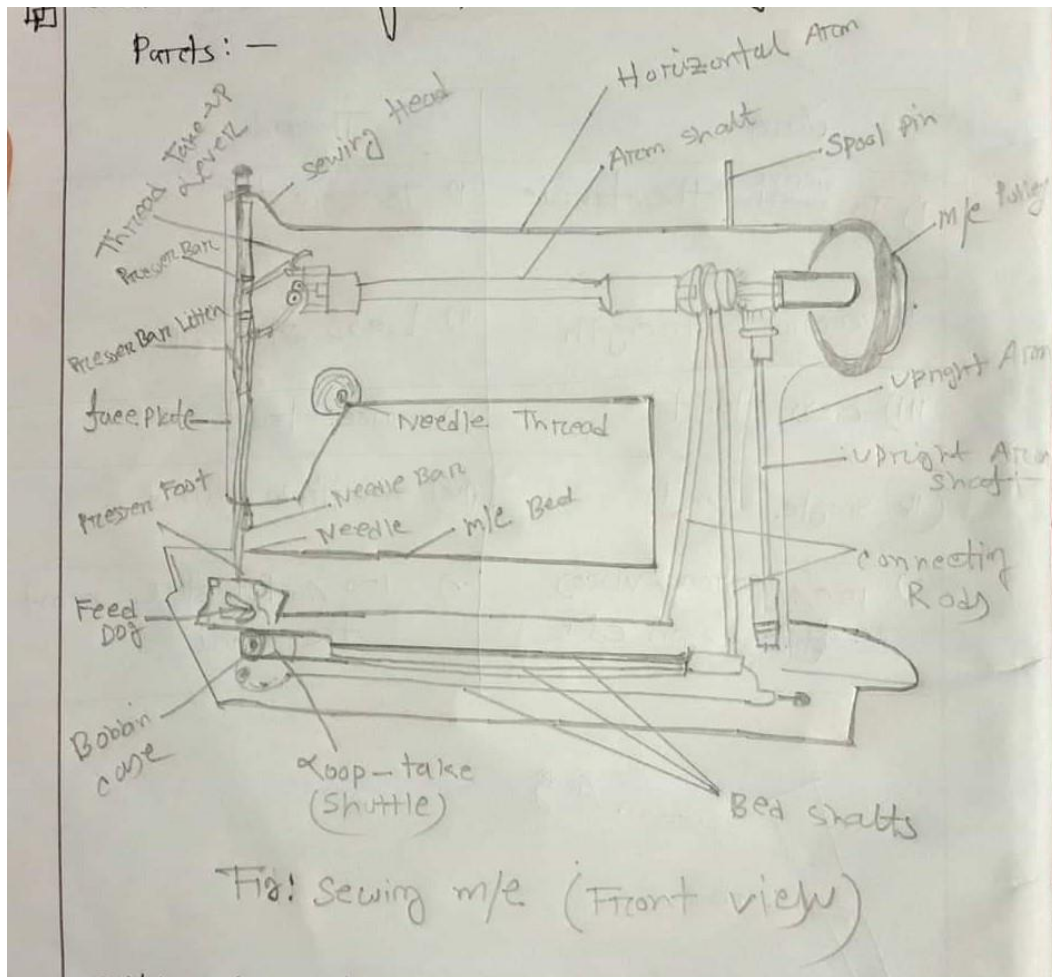 Parts: —
Horizontal Arm
Thread Take-up
Lever
Sewing Head
Arm shaft
Spool pin
m/c Pulley
Presser Bar
Presser Bar Lifter
face plate
Needle Thread
Upright Arm
Upright Arm
Shaft
Presser Foot
Needle Bar
Needle
m/c Bed
Connecting
Rods
Feed
Dog
Bobbin
case
Loop-take
(Shuttle)
Bed shafts
Fig: Sewing m/c (Front view)